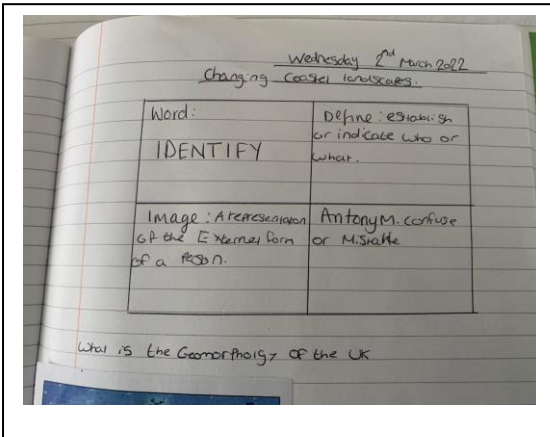 Wednesday 2nd March 2022
Changing Coastal landscapes.
Word:
IDENTIFY
Define: establish
or indicate who or
what.
Image: A representation
of the External form
of a person.
Antonym. confuse
or Mistake
What is the Geomorpholgy of the UK